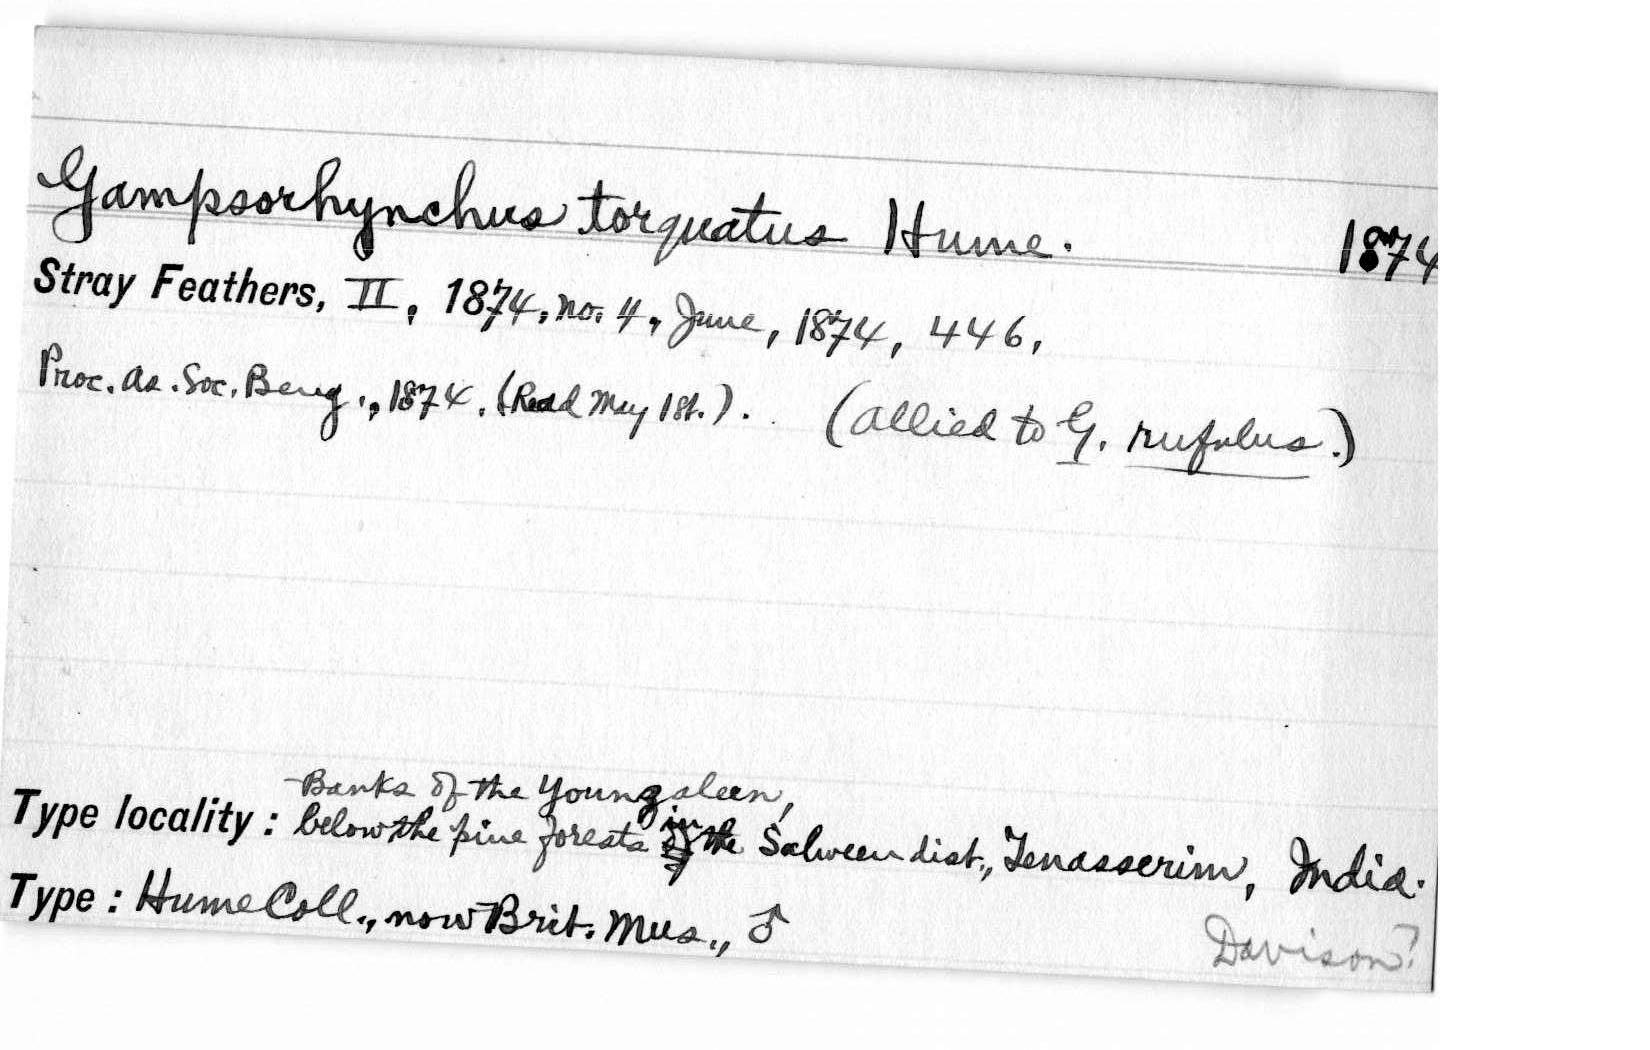 Gampsorhynchus torquatus Hume. 1874
Stray Feathers, II, 1874, no. 4, June, 1874, 446,
Proc. As. Soc. Beng., 1874. (Read May 1st.). (allied to G. rufulus.)
Banks of the Youngaleen,
Type locality: below the pine forests in the Salween dist., Tenasserim, India.
Type: Hume Coll., now Brit. Mus., ♂
Davison?